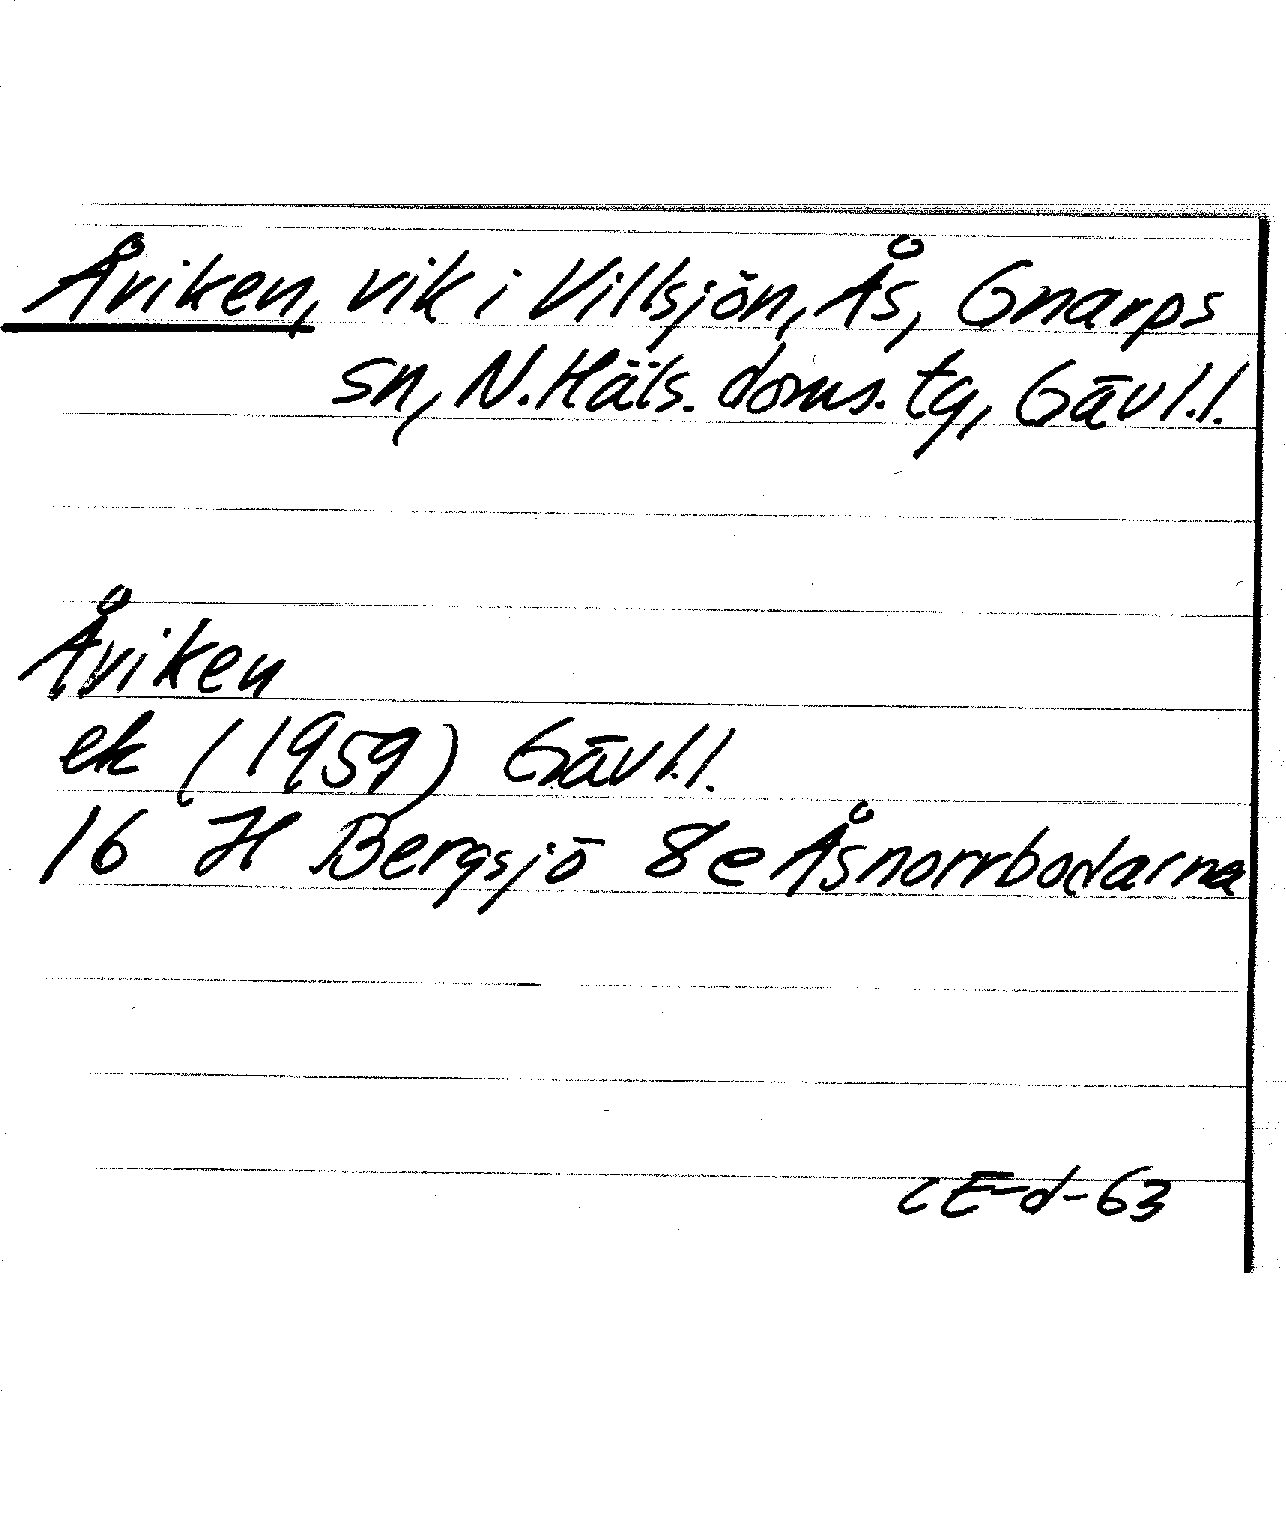 Åviken, vik i Villsjön, Ås, Gnarps
sn, N. Häls. doms. tg, Gävl.l.
Åviken
ek (1959) Gävl.l.
16 H Bergsjö 8e Åsnorrbodarna
CE-d-63